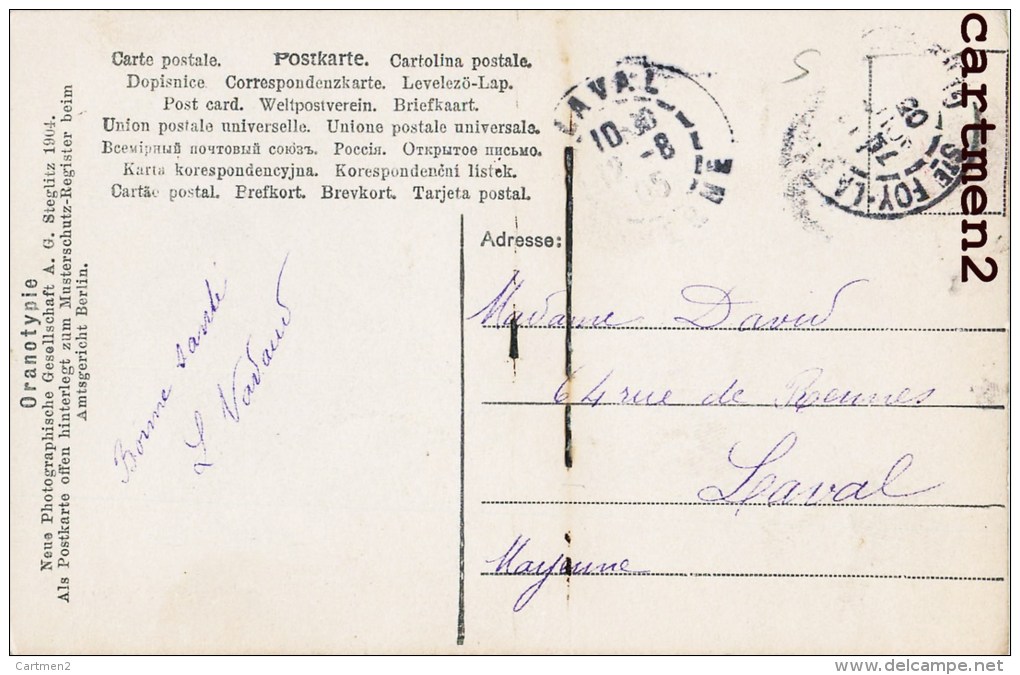 Carte postale. Postkarte. Cartolina postale.
Dopisnice Correspondenzkarte. Levelező-Lap.
Post card. Weltpostverein. Briefkaart.
Union postale universelle. Unione postale universale.
Всемірный почтовый союзъ. Россія. Открытое письмо.
Karta korespondencyjna. Korespondenční lístek.
Cartão postal. Prefkort. Brevkort. Tarjeta postal.
Oranotypie
Neue Photographische Gesellschaft A. G. Steglitz 1904.
Als Postkarte offen hinterlegt zum Musterschutz-Register beim
Amtsgericht Berlin.
Bonne santé
L Nadaud
LAVAL
10
8
STE FOY-LA
20
Adresse:
Madame David
64 rue de Rennes
Laval
Mayenne
cartmen2
Cartmen2
www.delcampe.net